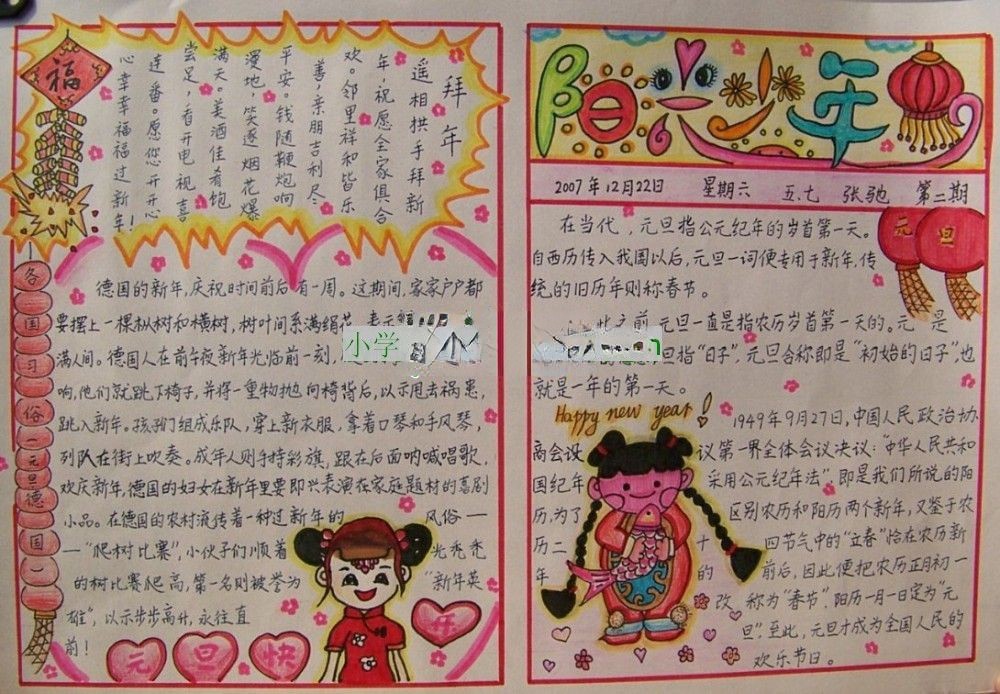 福
拜年
遥相拱手拜新
年,祝愿全家俱合
欢。邻里祥和皆乐
善,亲朋吉利尽
平安。钱随鞭炮响
漫地,笑逐烟花爆
满天。美酒佳肴饱
尝足,看开电视喜
连番。愿您开开心
心幸幸福福过新年!
各国习俗(元旦德国)
德国的新年,庆祝时间前后有一周。这期间,家家户户都
要摆上一棵枞树和横树,树叶间系满绢花,表示
满人间。德国人在前午夜新年光临前一刻,
响,他们就跳下椅子,并将一重物抛向椅背后,以示甩去祸患,
跳入新年。孩子们组成乐队,穿上新衣服,拿着口琴和手风琴,
列队在街上吹奏。成年人则手持彩旗,跟在后面呐喊唱歌,
欢庆新年,德国的妇女在新年里要即兴表演在家庭题材的喜剧
小品。在德国的农村流传着一种过新年的风俗—
—“爬树比赛”,小伙子们顺着光秃秃
的树比赛爬高,第一名则被誉为“新年英
雄”,以示步步高升,永往直
前!
元旦快乐
小学
小
阳光少年
2007年12月22日 星期六 五.七 张弛 第二期
元旦
在当代,元旦指公元纪年的岁首第一天。
自西历传入我国以后,元旦一词便专用于新年,传
统的旧历年则称春节。
此之前,元旦一直是指农历岁首第一天的。元是
旦指“日子”,元旦合称即是“初始的日子”,也
就是一年的第一天。
Happy new year!
1949年9月27日,中国人民政治协
商会议第一界全体会议决议:“中华人民共和
国纪年采用公元纪年法”,即是我们所说的阳
历,为了区别农历和阳历两个新年,又鉴于农
历二十四节气中的“立春”恰在农历新
年的前后,因此便把农历正月初一
改称为“春节”,阳历一月一日定为“元
旦”,至此,元旦才成为全国人民的
欢乐节日。